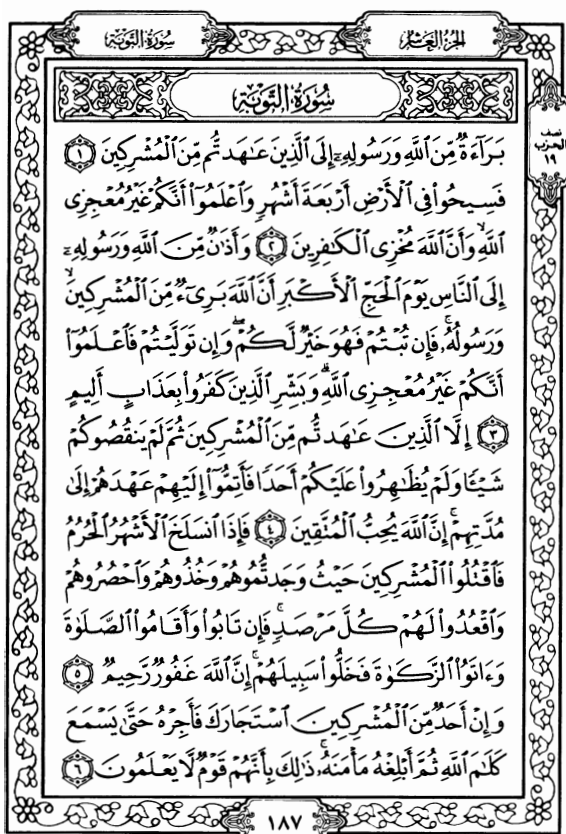 سُورَةُ التَّوْبَةِ
الجُزْءُ العَاشِرُ
سُورَةُ التَّوْبَةِ
نصف
الحزب
١٩
بَرَآءَةٌ مِّنَ ٱللَّهِ وَرَسُولِهِۦٓ إِلَى ٱلَّذِينَ عَـٰهَدتُّم مِّنَ ٱلْمُشْرِكِينَ ١
فَسِيحُوا۟ فِى ٱلْأَرْضِ أَرْبَعَةَ أَشْهُرٍ وَٱعْلَمُوٓا۟ أَنَّكُمْ غَيْرُ مُعْجِزِى
ٱللَّهِ ۙ وَأَنَّ ٱللَّهَ مُخْزِى ٱلْكَـٰفِرِينَ ٢ وَأَذَٰنٌ مِّنَ ٱللَّهِ وَرَسُولِهِۦٓ
إِلَى ٱلنَّاسِ يَوْمَ ٱلْحَجِّ ٱلْأَكْبَرِ أَنَّ ٱللَّهَ بَرِىٓءٌ مِّنَ ٱلْمُشْرِكِينَ ۙ
وَرَسُولُهُۥ ۚ فَإِن تُبْتُمْ فَهُوَ خَيْرٌ لَّكُمْ ۖ وَإِن تَوَلَّيْتُمْ فَٱعْلَمُوٓا۟
أَنَّكُمْ غَيْرُ مُعْجِزِى ٱللَّهِ ۗ وَبَشِّرِ ٱلَّذِينَ كَفَرُوا۟ بِعَذَابٍ أَلِيمٍ
٣ إِلَّا ٱلَّذِينَ عَـٰهَدتُّم مِّنَ ٱلْمُشْرِكِينَ ثُمَّ لَمْ يَنقُصُوكُمْ
شَيْـًٔا وَلَمْ يُظَـٰهِرُوا۟ عَلَيْكُمْ أَحَدًا فَأَتِمُّوٓا۟ إِلَيْهِمْ عَهْدَهُمْ إِلَىٰ
مُدَّتِهِمْ ۚ إِنَّ ٱللَّهَ يُحِبُّ ٱلْمُتَّقِينَ ٤ فَإِذَا ٱنسَلَخَ ٱلْأَشْهُرُ ٱلْحُرُمُ
فَٱقْتُلُوا۟ ٱلْمُشْرِكِينَ حَيْثُ وَجَدتُّمُوهُمْ وَخُذُوهُمْ وَٱحْصُرُوهُمْ
وَٱقْعُدُوا۟ لَهُمْ كُلَّ مَرْصَدٍ ۚ فَإِن تَابُوا۟ وَأَقَامُوا۟ ٱلصَّلَوٰةَ
وَءَاتَوُا۟ ٱلزَّكَوٰةَ فَخَلُّوا۟ سَبِيلَهُمْ ۚ إِنَّ ٱللَّهَ غَفُورٌ رَّحِيمٌ ٥
وَإِنْ أَحَدٌ مِّنَ ٱلْمُشْرِكِينَ ٱسْتَجَارَكَ فَأَجِرْهُ حَتَّىٰ يَسْمَعَ
كَلَـٰمَ ٱللَّهِ ثُمَّ أَبْلِغْهُ مَأْمَنَهُۥ ۚ ذَٰلِكَ بِأَنَّهُمْ قَوْمٌ لَّا يَعْلَمُونَ ٦
١٨٧